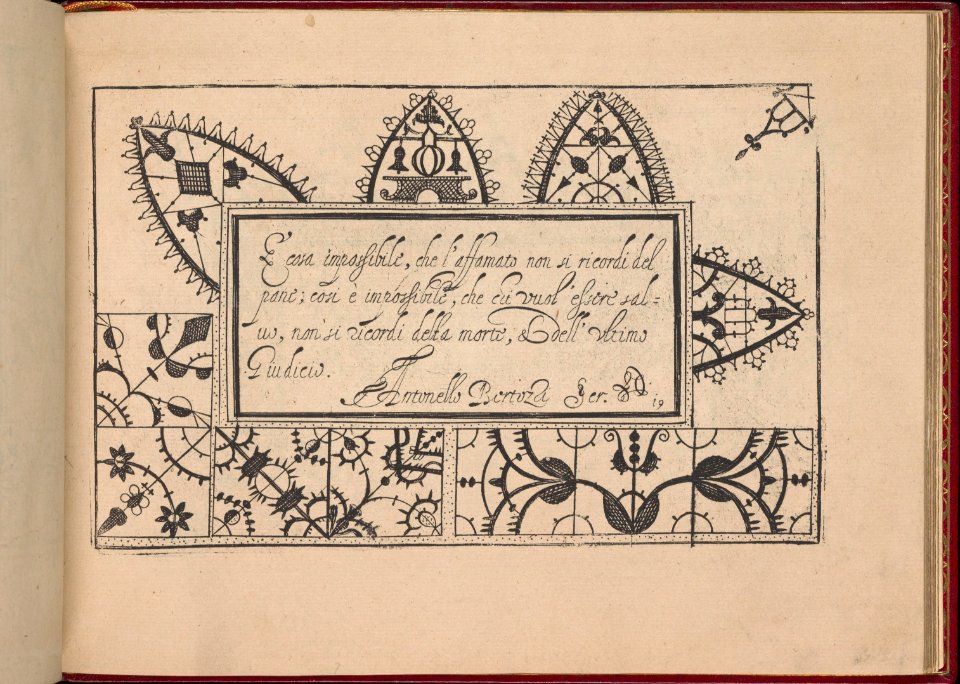 E cosa impossibile, che l'affamato non si ricordi del
pane; cosi è impossibile, che chi vuol' essere sal=
uo, non si ricordi della morte, & dell' vltimo
Giudicio.
Antonello Bertoza
19